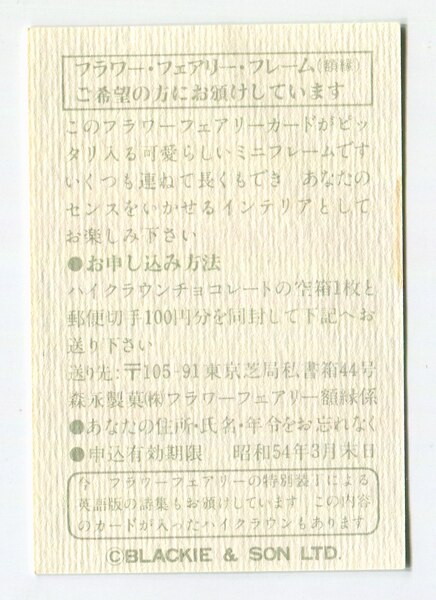 フラワー・フェアリー・フレーム(額縁)
ご希望の方にお頒けしています
このフラワーフェアリーカードがピッ
タリ入る可愛らしいミニフレームです
いくつも連ねて長くもでき あなたの
センスをいかせるインテリアとして
お楽しみ下さい
●お申し込み方法
ハイクラウンチョコレートの空箱1枚と
郵便切手100円分を同封して下記へお
送り下さい
送り先:〒105-91東京芝局私書箱44号
森永製菓(株)フラワーフェアリー額縁係
●あなたの住所・氏名・年令をお忘れなく
●申込有効期限 昭和54年3月末日
フラワーフェアリーの特別装丁による
英語版の詩集もお頒けしています この内容
のカードが入ったハイクラウンもあります
©BLACKIE & SON LTD.